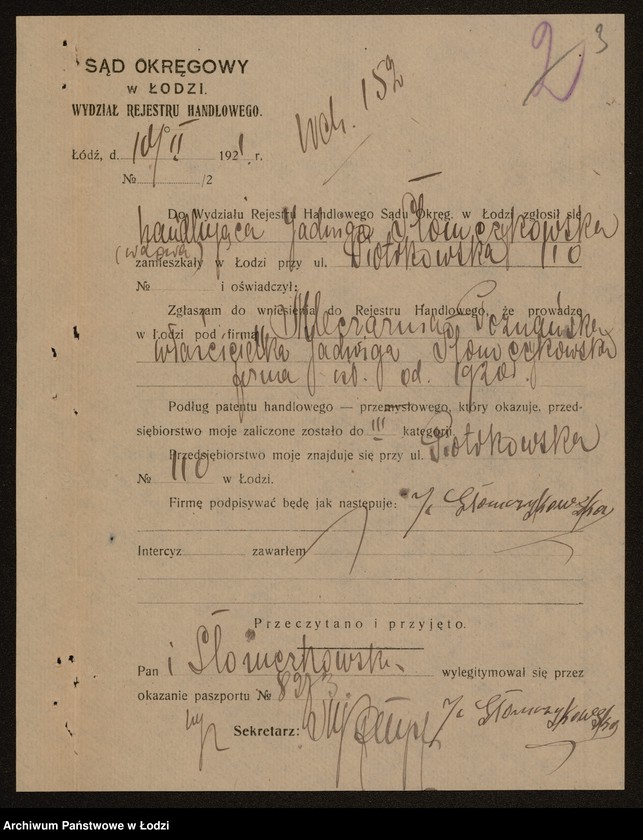 2 3
SĄD OKRĘGOWY
W ŁODZI.
WYDZIAŁ REJESTRU HANDLOWEGO.
Wch. 152
Łódź, d. 10/II 1921 r.
№ /2
Do Wydziału Rejestru Handlowego Sądu Okręg. w Łodzi zgłosił się
handlująca Jadwiga Słomczykowska
(wdowa)
zamieszkały w Łodzi przy ul. Piotrkowska 110
№ i oświadczył:
Zgłaszam do wniesienia do Rejestru Handlowego, że prowadzę
w Łodzi pod firmą „Mleczarnia Poznańska
właścicielka Jadwiga Słomczykowska
firma od. 1920 r.
Podług patentu handlowego — przemysłowego, który okazuje, przed-
siębiorstwo moje zaliczone zostało do III kategorji.
Przedsiębiorstwo moje znajduje się przy ul. Piotrkowska
№ 110 w Łodzi.
Firmę podpisywać będę jak następuje: J. Słomczykowska
Intercyz zawarłem
Przeczytano i przyjęto.
Pan i Słomczykowska wylegitymował się przez
okazanie paszportu №
Sekretarz: J. Słomczykowska
Archiwum Państwowe w Łodzi